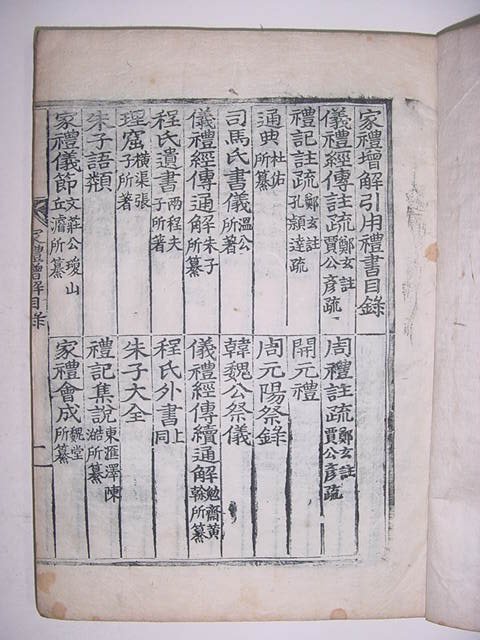 家禮增解引用禮書目錄
儀禮經傳註疏 鄭玄註賈公彦疏 周禮註疏 鄭玄註賈公彦疏
禮記註疏 鄭玄註孔頴達疏 開元禮
通典 杜佑所纂 周元陽祭錄
司馬氏書儀 溫公所著 韓魏公祭儀
儀禮經傳通解 朱子所纂 儀禮經傳續通解 勉齋黃榦所纂
程氏遺書 兩程夫子所著 程氏外書 上同
理窟 橫渠張子所著 朱子大全
朱子語類 禮記集說 東匯澤陳澔所纂
家禮儀節 文莊公瓊山丘濬所纂 家禮會成 魏堂所纂
家禮增解目錄 一